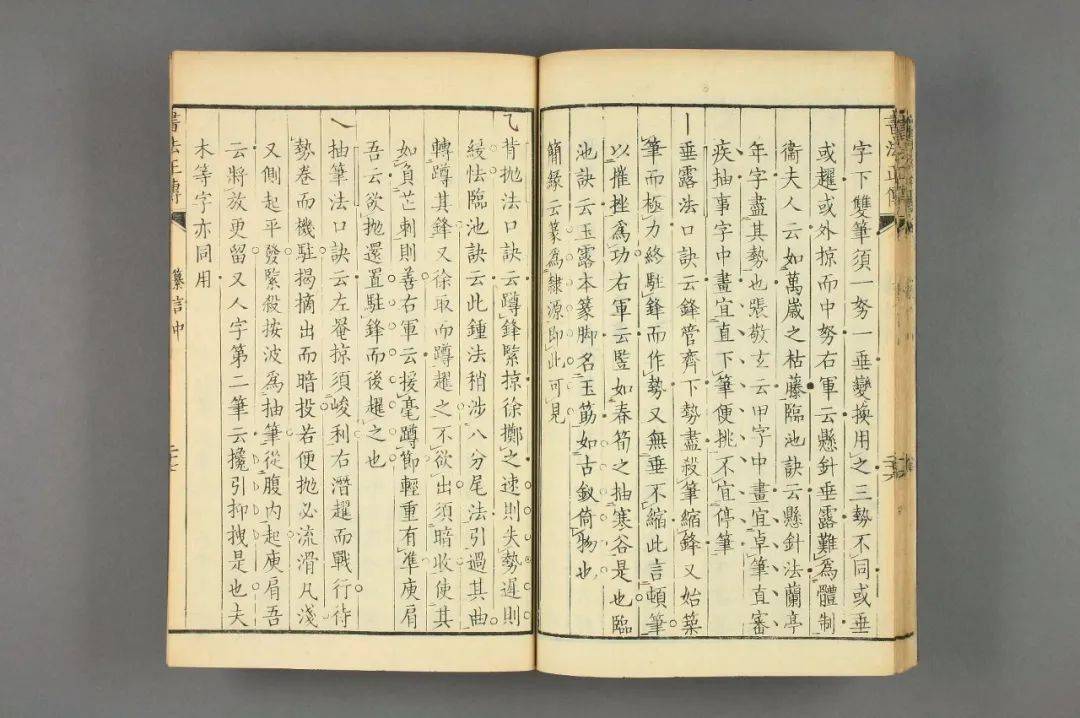 字下雙筆須一努一垂變換用之三勢不同或垂
或趯或外掠而中努右軍云懸針垂露難爲體制
衞夫人云如萬歲之枯藤臨池訣云懸針法蘭亭
年字盡其勢也張敬玄云甲字中畫宜卓筆直審
疾抽事字中畫宜直下筆便挑不宜停筆
丨垂露法口訣云鋒管齊下勢盡殺筆縮鋒又始築
筆而極力終駐鋒而作勢又無垂不縮此言頓筆
以摧挫爲功右軍云竪如春筍之抽寒谷是也臨
池訣云玉露本篆脚名玉筯如古釵倚物也
簡緣云篆爲隸源即此可見
乁背抛法口訣云蹲鋒緊掠徐擲之速則失勢遲則
緩怯臨池訣云此鍾法稍涉八分尾法引過其曲
轉蹲其鋒又徐取而蹲趯之不欲出須暗收使其
如負芒刺則善右軍云援毫蹲節輕重有準庾肩
吾云欲抛還置駐鋒而後趯之也
乀抽筆法口訣云左罨掠須峻利右潛趯而戰行待
勢卷而機駐揭摘出而暗投若便抛必流滑凡淺
又側起平發緊殺按波爲抽筆從腹内起庾肩吾
云將放更留又人字第二筆云攙引抑拽是也夫
木等字亦同用
書法正傳
纂言中